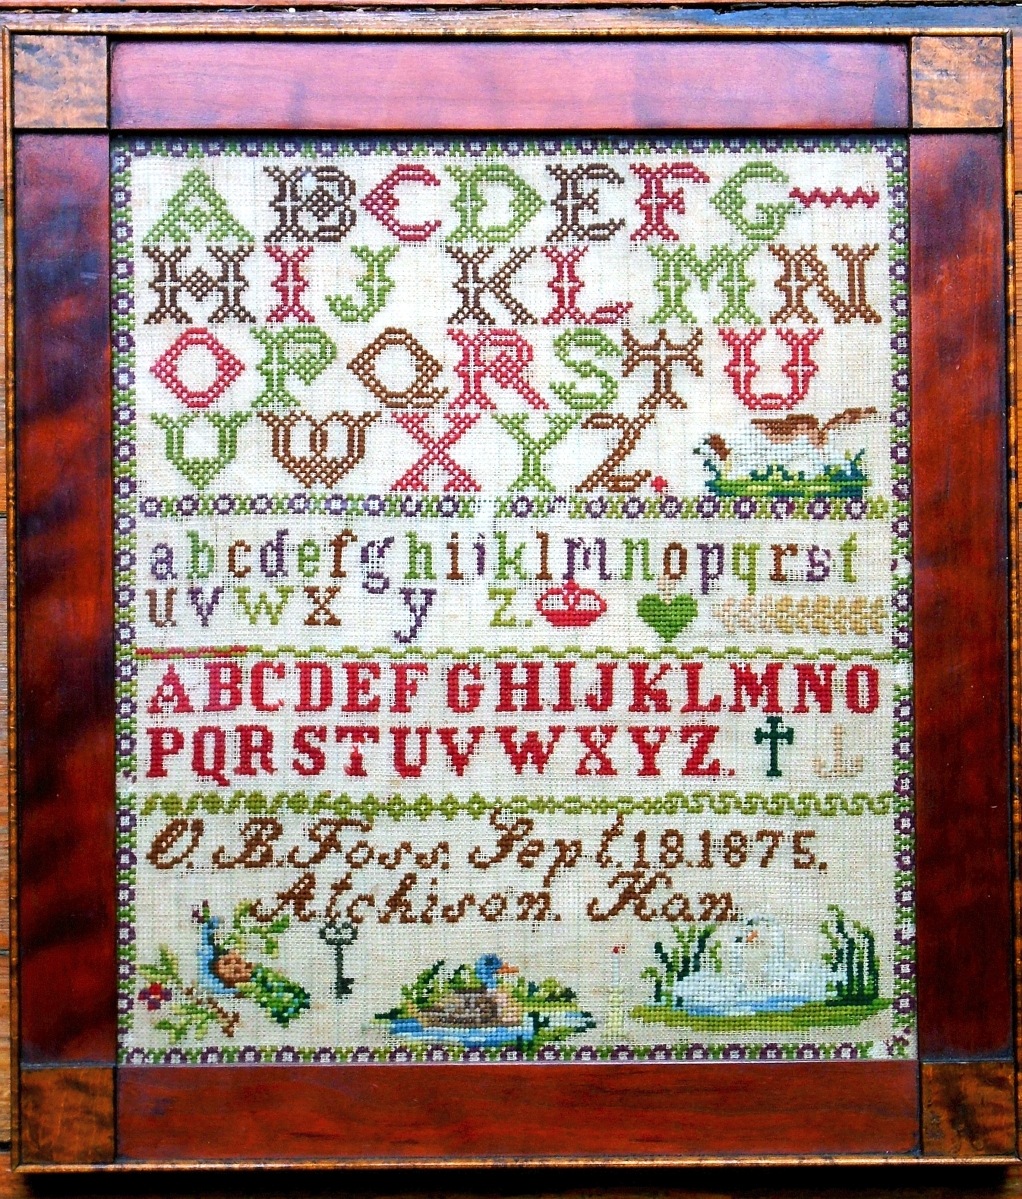 A B C D E F G
H I J K L M N
O P Q R S T U
V W X Y Z.
a b c d e f g h i j k l m n o p q r s t
u v w x y z.
A B C D E F G H I J K L M N O
P Q R S T U V W X Y Z.
O. B. Foss. Sept. 18. 1875.
Atchison. Kan.